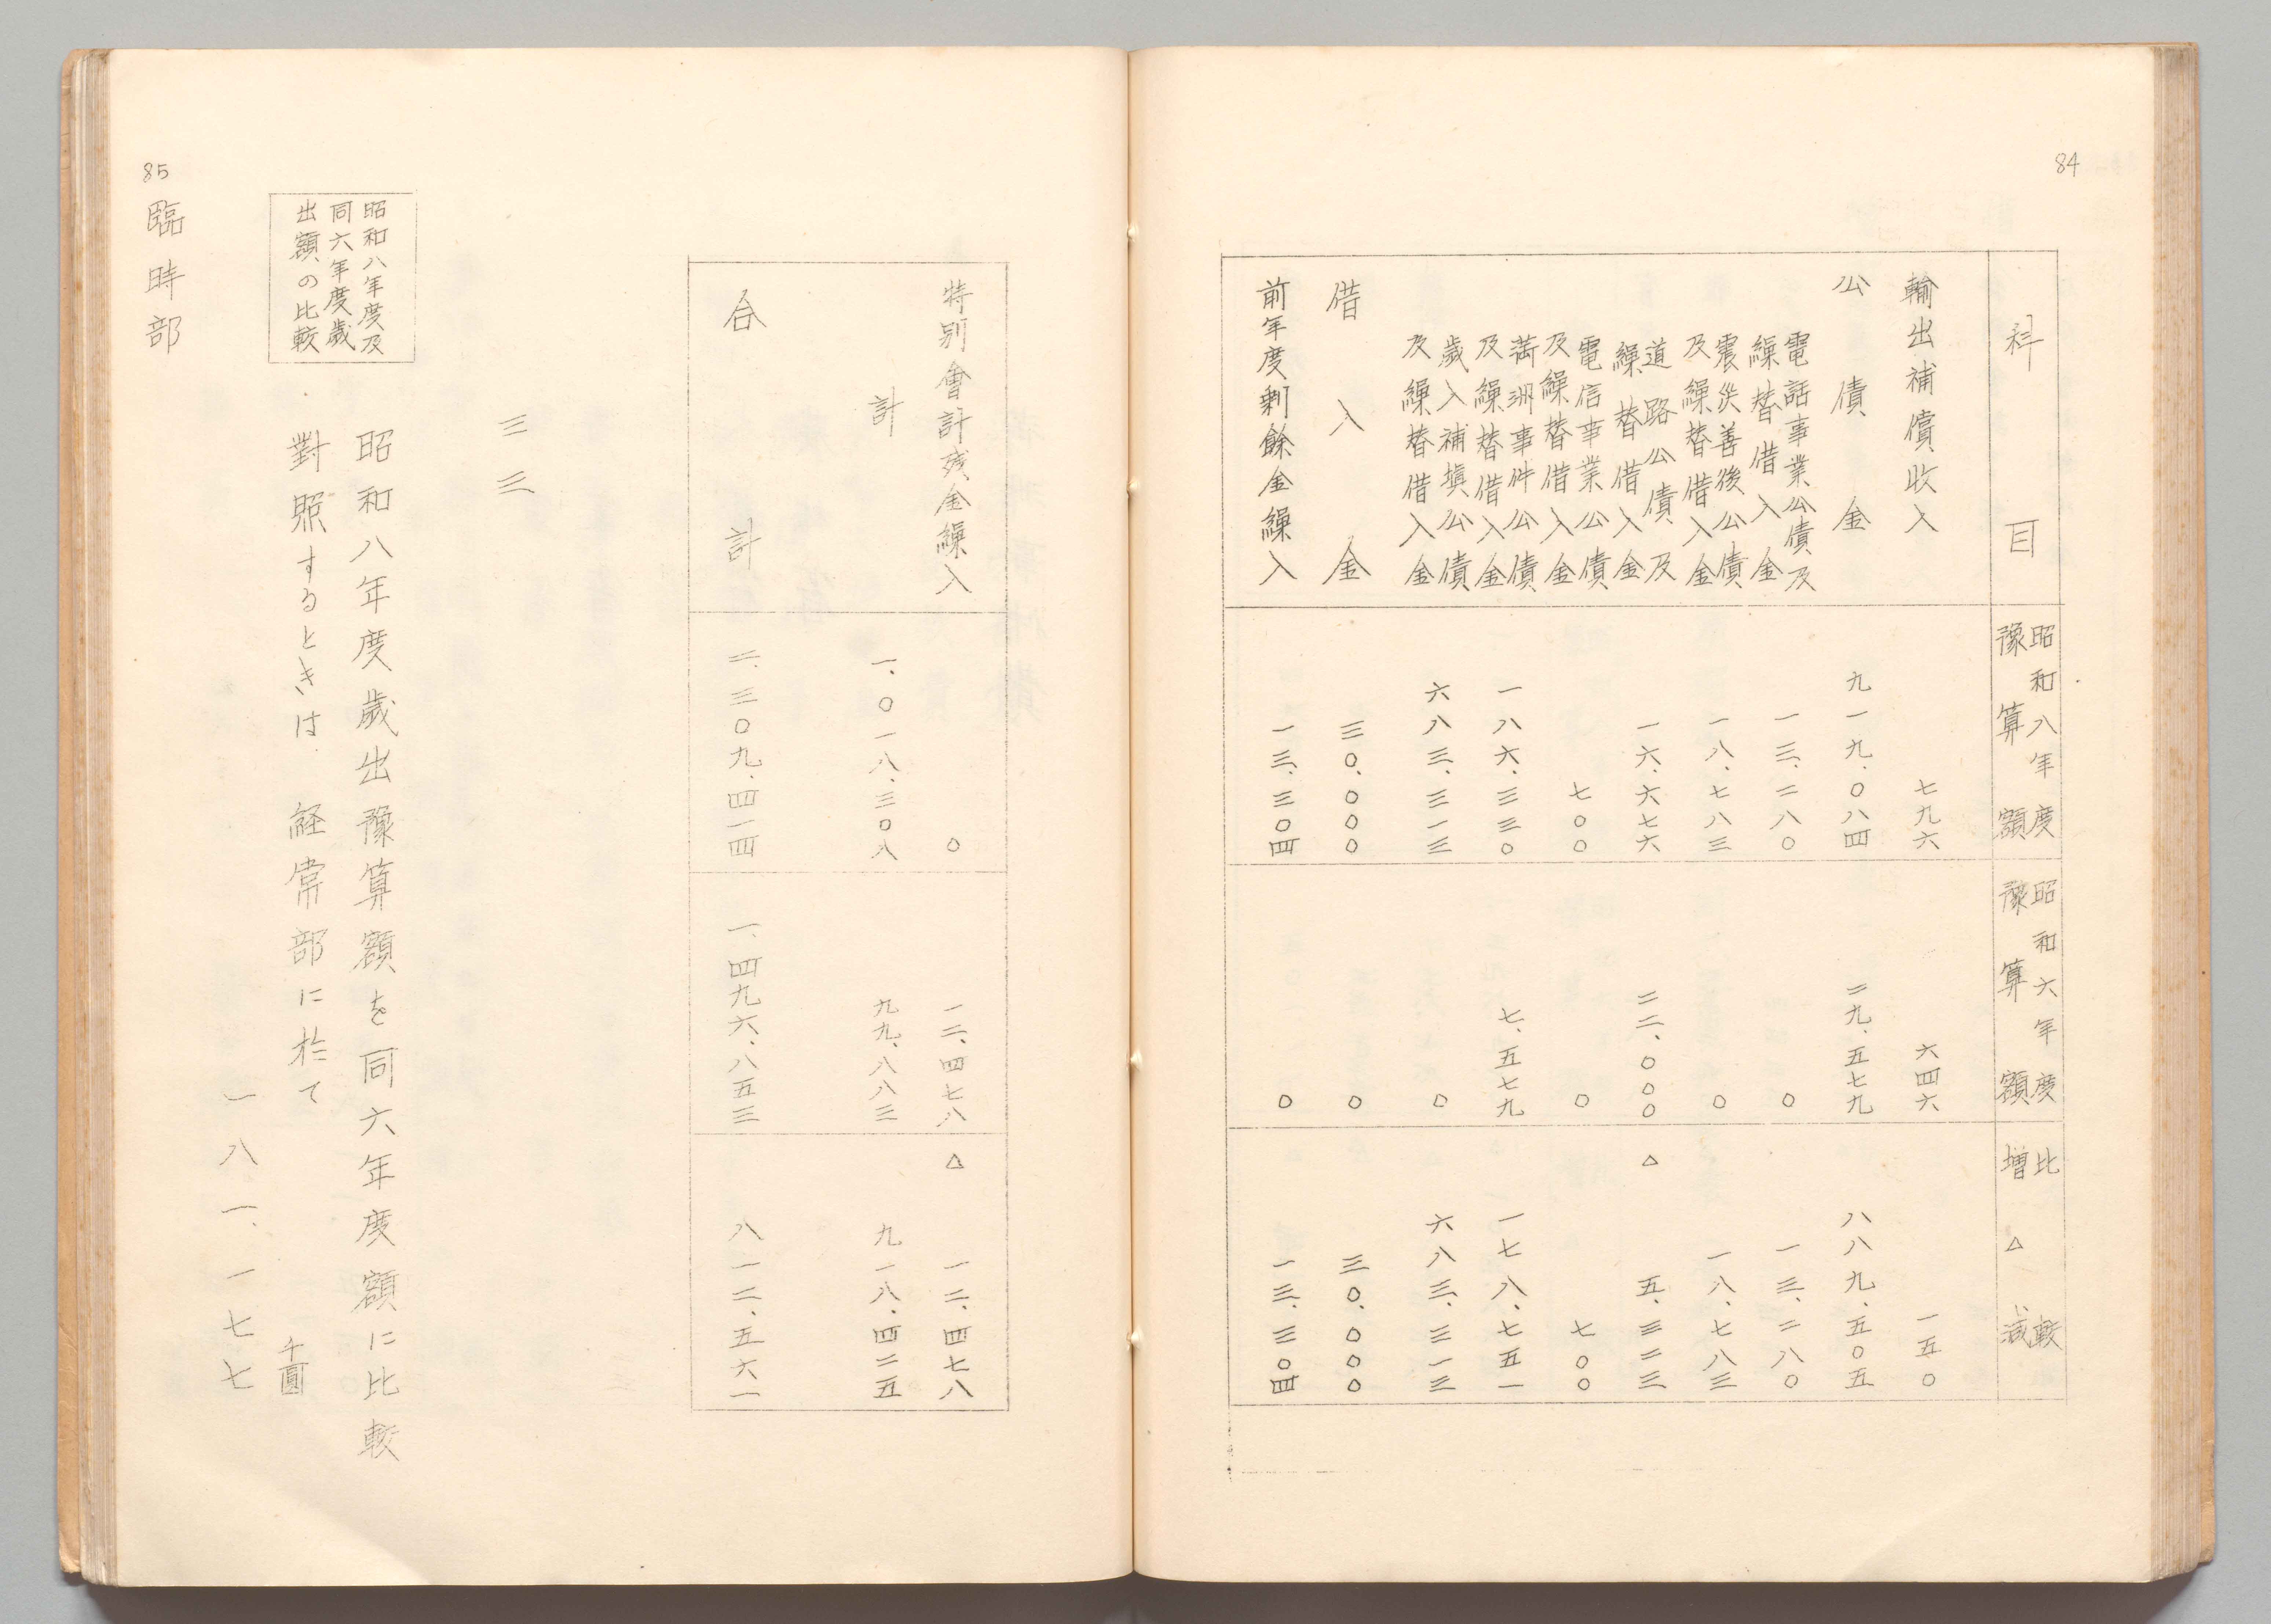 84
科目 昭和八年度 豫算額 昭和六年度 豫算額 比較 増△減
輸出補償收入 七九六 六四六 一五〇
公債金 九一九、〇八四 二九、五七九 八八九、五〇五
電話事業公債及
繰替借入金 一三、二八〇 〇 一三、二八〇
震災善後公債
及繰替借入金 一八、七八三 〇 一八、七八三
道路公債及
繰替借入金 一六、六七六 二二、〇〇〇 △ 五、三二三
電信事業公債
及繰替借入金 七〇〇 〇 七〇〇
満洲事件公債
及繰替借入金 一八六、三三〇 七、五七九 一七八、七五一
歳入補填公債
及繰替借入金 六八三、三一三 〇 六八三、三一三
借入金 三〇、〇〇〇 〇 三〇、〇〇〇
前年度剰餘金繰入 一三、三〇四 〇 一三、三〇四
特別會計残金繰入 〇 一二、四七八 △ 一二、四七八
計 一、〇一八、三〇八 九九、八八三 九一八、四二五
合計 二、三〇九、四一四 一、四九六、八五三 八一二、五六一
三三
昭和八年度及
同六年度歳
出額の比較
昭和八年度歳出豫算額を同六年度額に比較
對照するときは 経常部に於て
千圓
一八一、一七七
85
臨時部